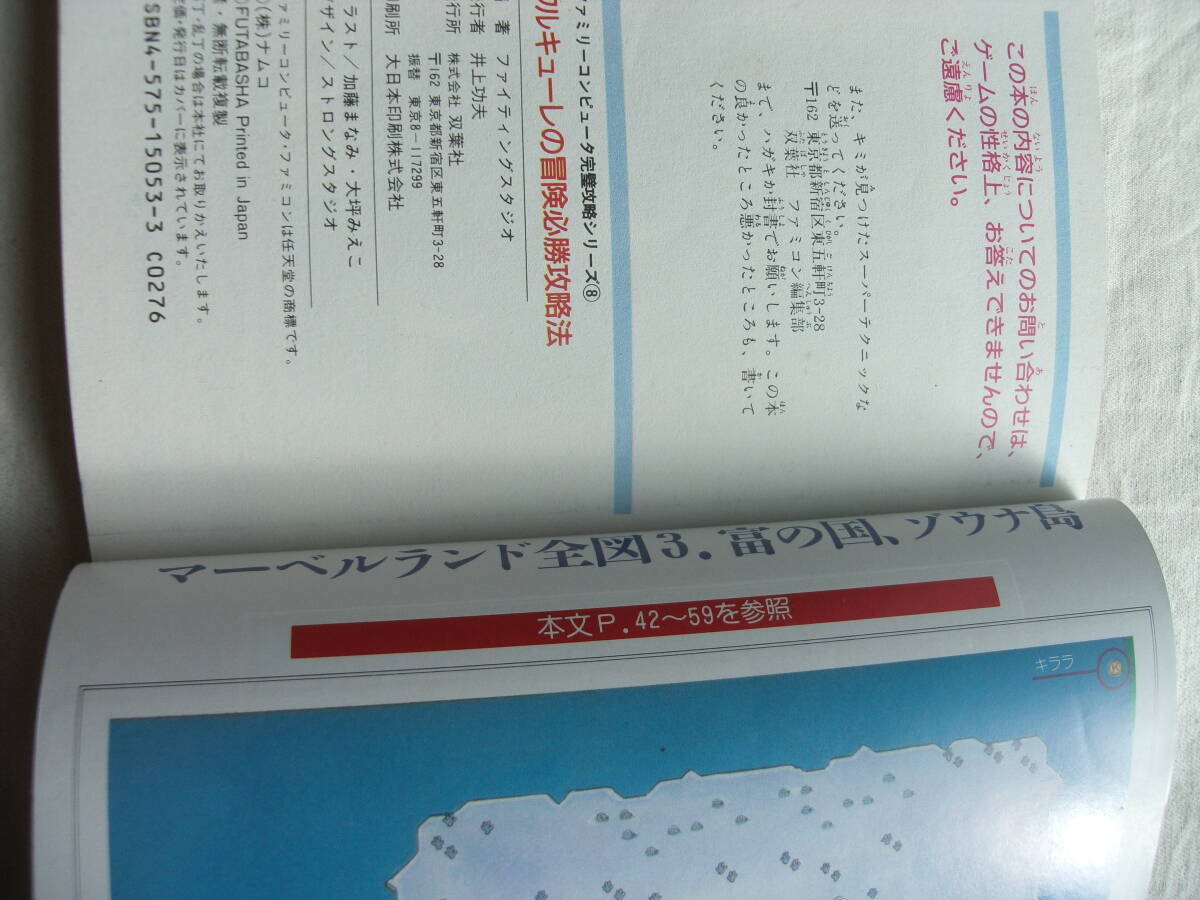 この本の内容についてのお問い合わせは、
ゲームの性格上、お答えできませんので、
ご遠慮ください。
また、キミが見つけたスーパーテクニックな
どを送ってください。
〒162 東京都新宿区東五軒町3-28
双葉社 ファミコン編集部
まで、ハガキか封書でお願いします。この本
の良かったところ悪かったところも、書いて
ください。
ァミリーコンピュータ完璧攻略シリーズ⑧
ワルキューレの冒険必勝攻略法
著 ファイティングスタジオ
行者 井上功夫
行所 株式会社 双葉社
〒162 東京都新宿区東五軒町3-28
振替 東京8-117299
印刷所 大日本印刷株式会社
ラスト/加藤まなみ・大坪みえこ
ザイン/ストロングスタジオ
(株)ナムコ
ァミリーコンピュータ・ファミコンは任天堂の商標です。
©FUTABASHA Printed in Japan
・無断転載複製
丁・乱丁の場合は本社にてお取りかえいたします。
価・発行日はカバーに表示されています。
SBN4-575-15053-3 C0276
マーベルランド全図3.富の国、ゾウナ島
本文P.42〜59を参照
キララ